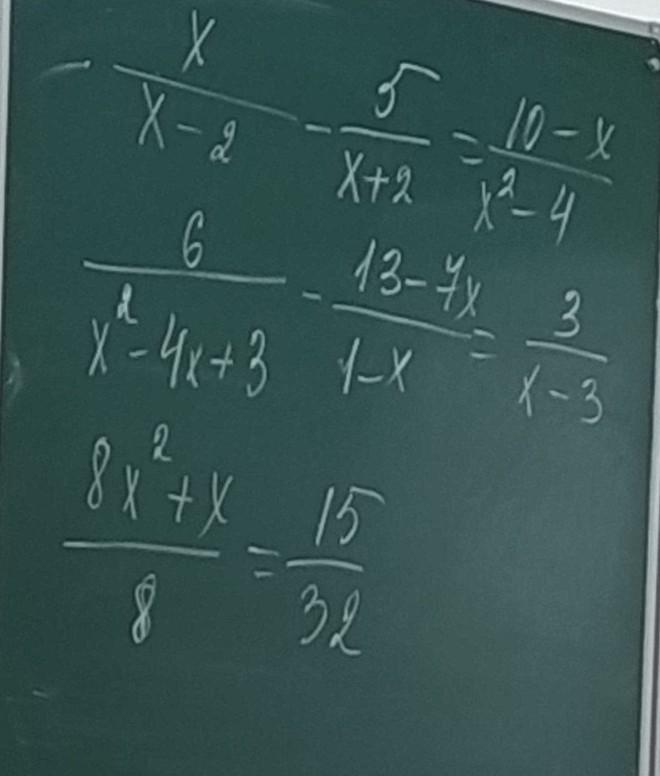 x/(x-2) - 5/(x+2) = (10-x)/(x²-4)
6/(x²-4x+3) - (13-7x)/(1-x) = 3/(x-3)
(8x²+x)/8 = 15/32